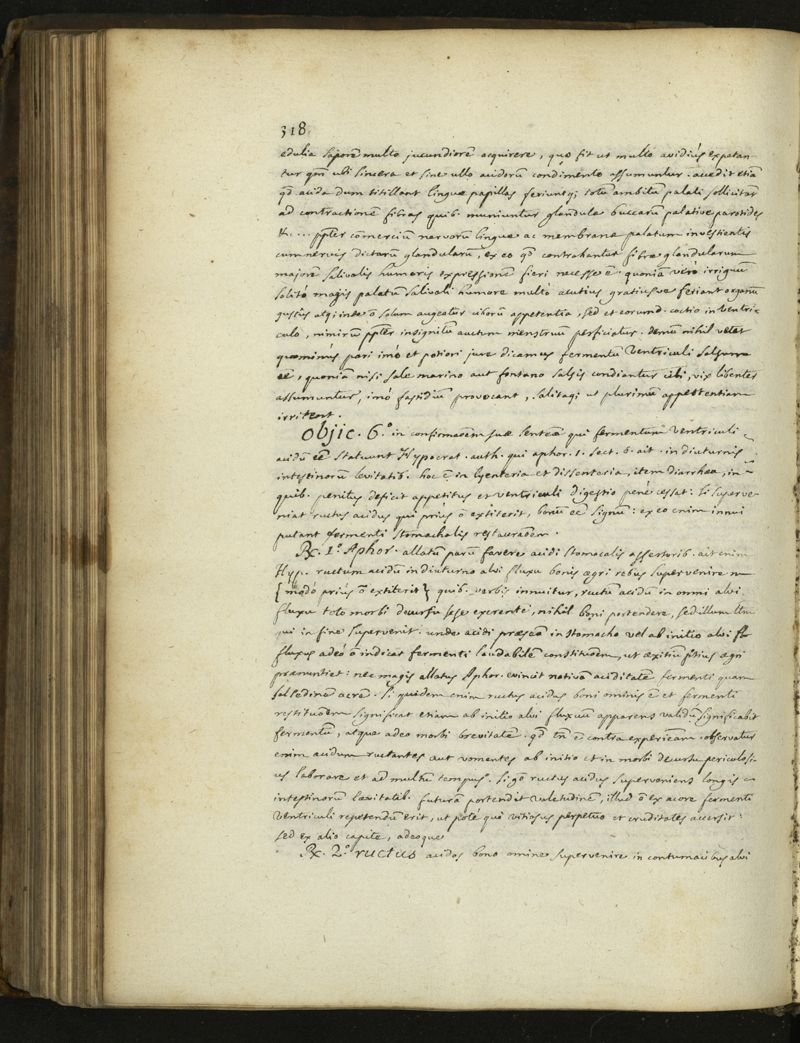 318.
edulia saporē multo jucundiorē acquirere, quo fit ut multo avidiùs expetan-
tur qm̄ ubi sincera et sine ullo acidorū condimento assumuntur. accedit etiā
qd̄ acida dum titillant linguæ papillas feriuntq; totū ambitū palati sollicitāt
ad contractionē fibras quib. muniuntur glandulæ buccarū palatinæ parotides
&c... ppter cōmerciū nervorū linguæ ac membranæ palatum investientis
cum nervis dictarū glandularū, ex eo qd̄ contrahantur fibræ glandularum
majorē salivalis humoris expressionē fieri necesse ē. quoniā verò irriguū
solito magis palatū salivali humore multò acutius gratiusve feriant organū
gustûs atq; inde ō solum augeatur ciborū appetentia, sed et eorund. coctio in ventri-
culo, nimirū ppter insignitū auctum menstruū perficiatur. demū nihil vetat
quominùs pari imò et potiori jure dicamus fermentū ventriculi salsum
eē, quoniā nisi sale marino aut fontano salsis condiantur cibi, vix libenter
assumuntur, imò fastidiū provocant, salitaq; ut plurimū appetentiam
irritent.
Objic. 6.º in confirmaōem suæ sentēæ qui fermentum ventriculi
acidū eē statuunt Hypocrat. auth. qui aphor. 1. sect. 6. ait. in diuturnis
intestinorū levitatib. hoc ē in lyenteria et dissenteria, item diarrhea, in
quib. penitus deficit appetitus et ventriculi digestio penè cessat: si superve-
niat ructus acidus qui priùs ō extiterit, bonū eē signū: ex eo enim innui
putant fermenti stomachalis restauraōem.
℞. 1.º Aphor. allatū parū favere acidi stomacalis assertorib. ait enim
Hyp. ructum acidū in diuturno alvi fluxu bonis ægri rebus supervenire
{modò priùs ō extiterit} quib. verbis innuitur, ructū acidū in omni alvi
fluxu toto morbi decursu sese exerente, nihil boni portendere, sed illum tm̄
qui in fine supervenit. unde acidi præsēa in stomacho vel ab initio alvi
fluxus adeò ō indicat fermenti laudabilē constituōem, ut exitiū potius ægri
prænuntiet: nec magis allatus Aphor. evincit nativā aciditatē fermenti quam
salsedinem acrē. si quidem enim ructus acidus boni ominis ē et fermenti
restituōem significat etiam ab initio alvi fluxuū apparens validū significabit
fermentū, atque adeo morbi brevitatē. qd̄ tn̄ ē contra experiēam. observatur
enim acidum ructantes aut vomentes ab initio et in morbi decursu periculosi-
us laborare et ad multū tempus. si gō ructus acidus superveniens longis
intestinorū lævitatib. futurā portendit valetudinē, illud ō ex acore fermenti
ventriculi repetendū erit, ut potè qui vitiosus perpetuo et cruditates accersit:
sed ex alio capite, adeoque
℞. 2.º ructus acidos bono omine supervenire in contumacibus alvi